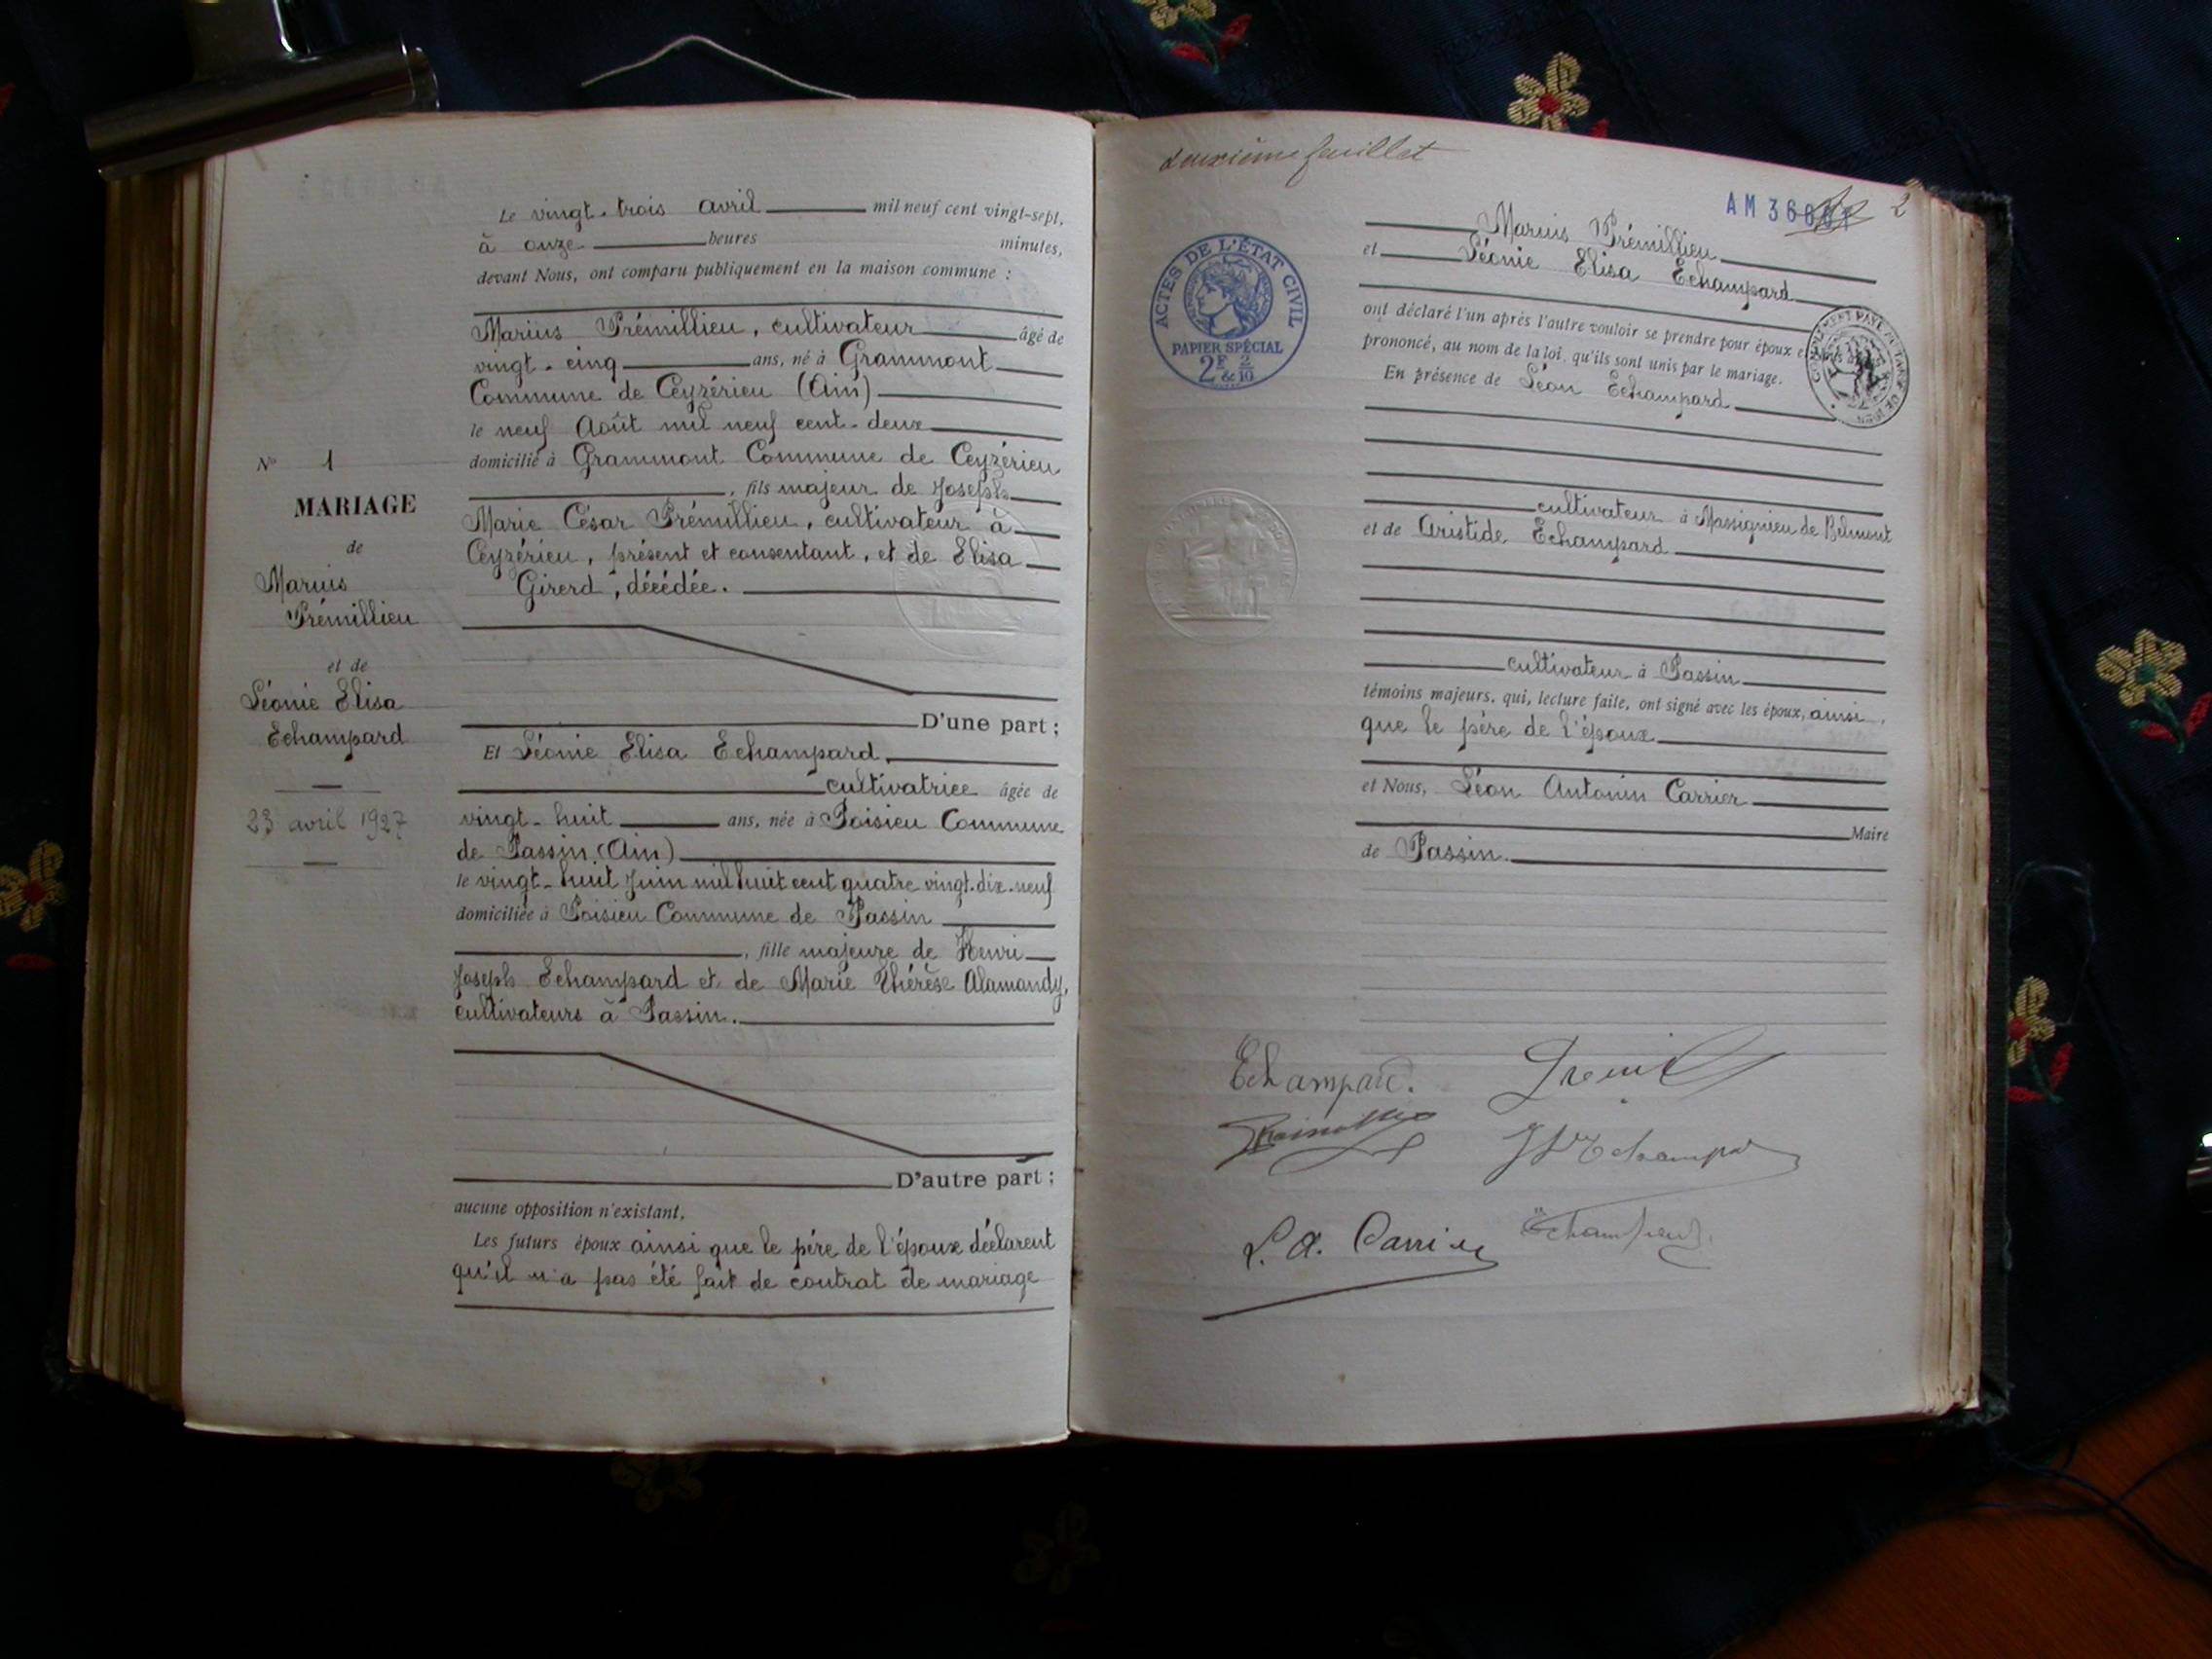 Le vingt-trois avril mil neuf cent vingt-sept,
à onze heures minutes,
devant Nous, ont comparu publiquement en la maison commune :
Marius Prémillieu, cultivateur âgé de
vingt-cinq ans, né à Grammont
Commune de Ceyzérieu (Ain)
le neuf Août mil neuf cent-deux
domicilié à Grammont Commune de Ceyzérieu
, fils majeur de Joseph
Marie César Prémillieu, cultivateur à
Ceyzérieu, présent et consentant, et de Elisa
Girerd, décédée.
D'une part ;
Et Léonie Elisa Echampard,
cultivatrice âgée de
vingt-huit ans, née à Poisieu Commune
de Passin (Ain)
le vingt-huit Juin mil huit cent quatre vingt-dix-neuf
domiciliée à Poisieu Commune de Passin
, fille majeure de Henri
Joseph Echampard et de Marie Thérèse Alamandy,
cultivateurs à Passin.
D'autre part ;
aucune opposition n'existant,
Les futurs époux ainsi que le père de l'époux déclarent
qu'il n'a pas été fait de contrat de mariage
N° 1
MARIAGE
de
Marius
Prémillieu
et de
Léonie Elisa
Echampard
23 avril 1927
deuxième feuillet
AM 36
2
ACTES DE L'ÉTAT CIVIL
PAPIER SPÉCIAL
2F & 2/10
Marius Prémillieu
et Léonie Elisa Echampard
ont déclaré l'un après l'autre vouloir se prendre pour époux et
prononcé, au nom de la loi, qu'ils sont unis par le mariage.
En présence de Léon Echampard
cultivateur à Massignieu de Belmont
et de Aristide Echampard
cultivateur à Passin
témoins majeurs, qui, lecture faite, ont signé avec les époux, ainsi
que le père de l'époux
et Nous, Léon Antonin Carrier
Maire
de Passin.
Echampard.
L. A. Carrier